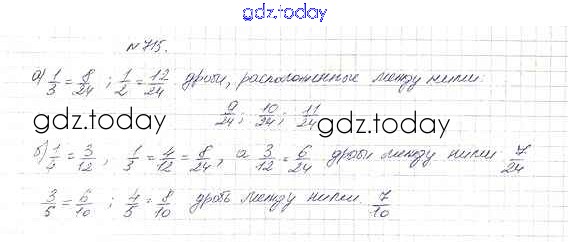 gdz.today
№ 715.
а) 1/3 = 8/24 ; 1/2 = 12/24 дроби, расположенные между ними:
9/24; 10/24; 11/24
gdz.today gdz.today
б) 1/4 = 3/12, 1/3 = 4/12 = 8/24, а 3/12 = 6/24 дроби между ними 7/24
3/5 = 6/10; 4/5 = 8/10 дробь между ними. 7/10